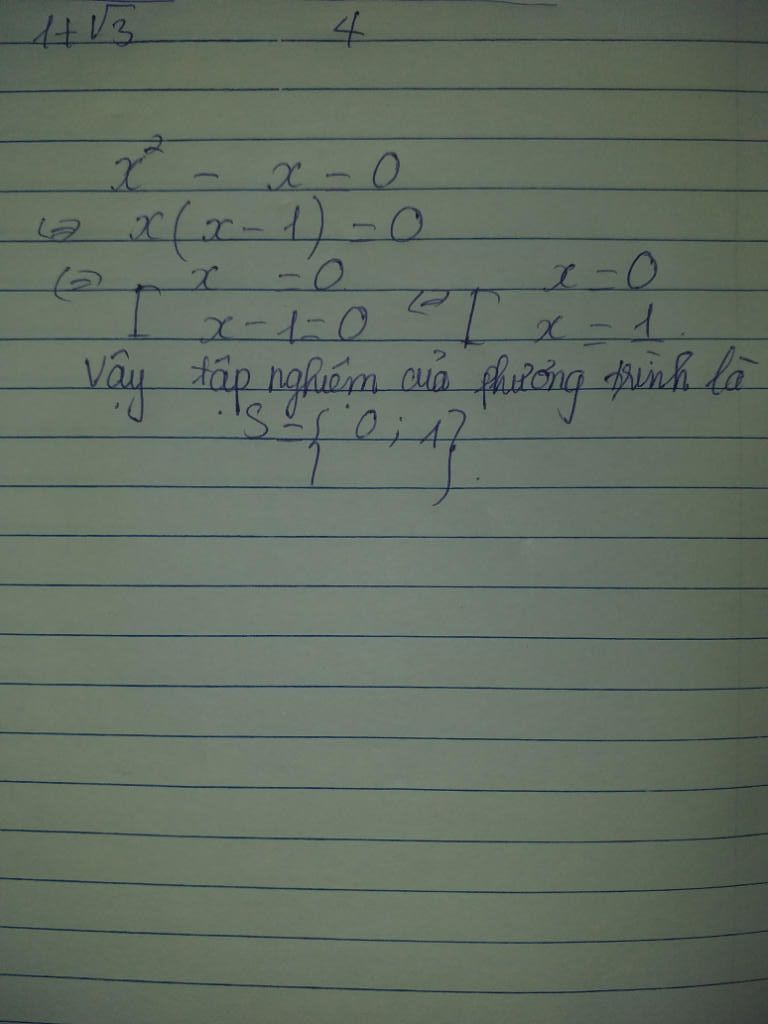 1+√3 4
x² - x = 0
⇔ x(x-1) = 0
⇔ [ x = 0 ⇔ [ x = 0
x-1=0 x = 1.
Vậy tập nghiệm của phương trình là
S = { 0 ; 1 }.